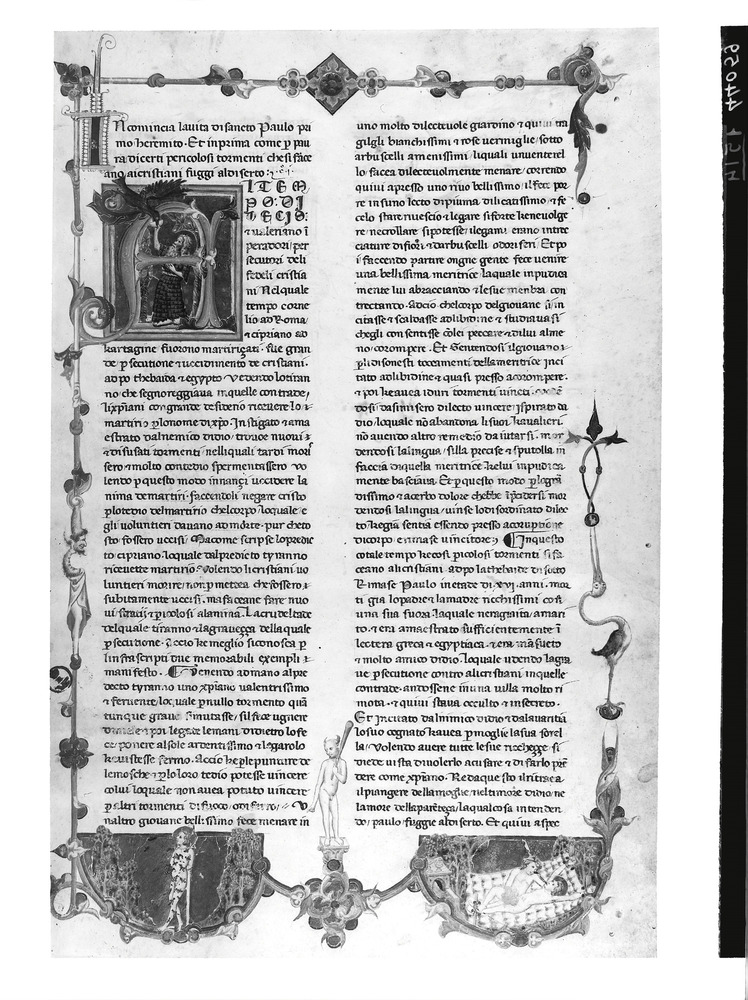 Ncomincia lauita di sancto Paulo pri
mo heremito. Et inprima come p pau
ra di certi pericolosi tormenti che si face
ano ai cristiani fuggi al diserto:
ITEM
PO: DI
DECIO:
& ualeriano i
peradori per
secutori deli
fedeli cristia
ni Nel quale
tempo corne
lio a Roma
& cipriano ad
kartagine fuorono martiriçati. fue gran
de psecutione & uccidimento de cristiani.
ad po thebaida & egypto Vedendo lo tiran
no che segnoreggiaua in quelle contrade,
li xpiani con grande desiderio riceuere lo
martirio p lo nome di xpo. Instigato & ama
estrato dal nemico didio, trouoe nuoui &
& disusati tormenti nelli quali tardi mori
sero & molto con tedio spermentassero vo
lendo p questo modo innançi uccidere la
nima che martiri. faccendoli negare cristo
p lo tedio del martirio che l corpo, loquale
gli uoluntieri dauano ad morte. pur che to
sto fossero uccisi. Ma come scripse lo predic
to cipriano. loquale dal predicto tyranno
riceuette martirio. Volendo li cristiani uo
luntieri morire non pmettea che fossero
subitamente uccisi. ma faceane fare nuo
ui & picolosi a lanima. La crudeltade
del quale tiranno & la graueçça della quale
psecutione. Accio ke meglio si conosca p
li infrascripti due memorabili exempli
manifesto. Venendo ad mano al pre
decto tyranno uno xpiano ualentrissimo
& feruente, lo quale p nullo tormento qua
tunque graue si mutasse, sil fece ugnere
di mele & poi legare le mani dirietro lo fe
ce ponere al sole ardentissimo & lagarolo
ke uistesse fermo. Accio ke p le punture de
le mosche & p lo loro tedio potesse uincere
colui loquale non auea potuto uincere
p altri tormenti di fuoco
naltro giouane bellissimo fece menare in
uno molto dilecteuole giardino & quiui tra
gilgli bianchissimi & rose uermiglie & sotto
arbuscelli amenissimi liquali un uenterel
lo facea dilecteuolmente menare, correndo
quiui apresso uno rio bellissimo il fece por
re in su uno lecto di piuma dilicatissimo & fe
celo stare riuescio & legare si forte ke non uolge
re ne crollare si potesse: ilegami erano intre
cciature di fiori & darbuscelli odoriferi. Et po
i faccendo partire ongne gente fece uenire
una bellissima meritrice laquale inpudica
mente lui abracciando & le sue menbra con
trectando. Acciò che l corpo del giouane si in
citasse & scaldasse ad libidine & studiauasi
che gli consentisse con lei peccare & di lui alme
no corompere. Et Sentendosi il giouano
p li disonesti toccamenti della meritrice inci
tato ad libidine & quasi presso a corompere.
& poi ke auea i duri tormenti uinti
dosi da si misero dilecto uincere Ispirato da
dio, loquale no abandona li suoi kaualieri.
no auendo altro remedio da iutarsi. mor
dendosi la lingua silla precise & sputolla in
faccia di quella meritrice ke lui inpudica
mente basciaua. Et p questo modo p lo gra
dissimo & acerbo dolore chebbe i pdersi mor
dendosi la lingua, uinse lo disordinato dilec
to ke gia sentia essendo presso a corruptione
di corpo & rimase uincitore: In questo
cotale tempo ke cosi picolosi tormenti si fa
ceano a li cristiani ad po la thebaide di sotto
Rimase Paulo in etade di xvi. anni. mor
ti gia lo padre & la madre ricchissimi co fi
una sua suora. laquale nera gia ita a mari
to. & era amaestrato sufficientemente i
lectera greca & egyptiaca. & era mansueto
& molto amico didio. loquale udendo la gra
ue psecutione contro a li cristiani in quelle
contrade. andossene in una uilla molto ri
mota. & quiui staua occulto & in secreto.
Et Incitato dal nimico didio & dal auaritia
lo suo cognato ke auea p moglie la sua sorel
la. Volendo auere tutte le sue ricchecçe si
diede uista di uolerlo acusare & di farlo pre
dere come xpiano. Ne da questo il ritraea
il piangere della moglie, nel timore didio, ne
lamore della parentega. laqual cosa intenden
do, paulo fuggie al diserto. Et quiui aspec
44059